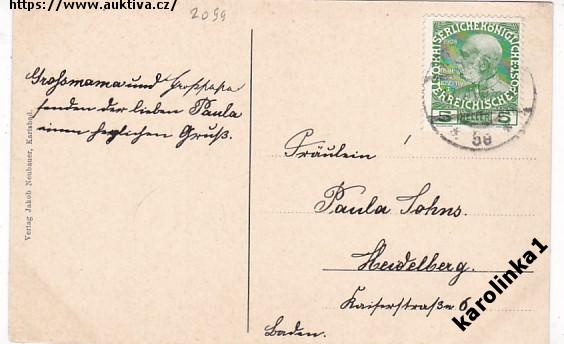 https://www.auktiva.cz/
2099
Grossmama und Grosspapa
senden der lieben Paula
einen herzlichen Gruß.
Verlag Jakob Neubauer, Karlsbad.
KAISERLICHEKÖNIGLICHE
ÖSTERREICHISCHE POST
5 HELLER 5
* 59 *
Fräulein
Paula Sohns.
Heidelberg.
Kaiserstraße 6.
Baden.
karolinka1